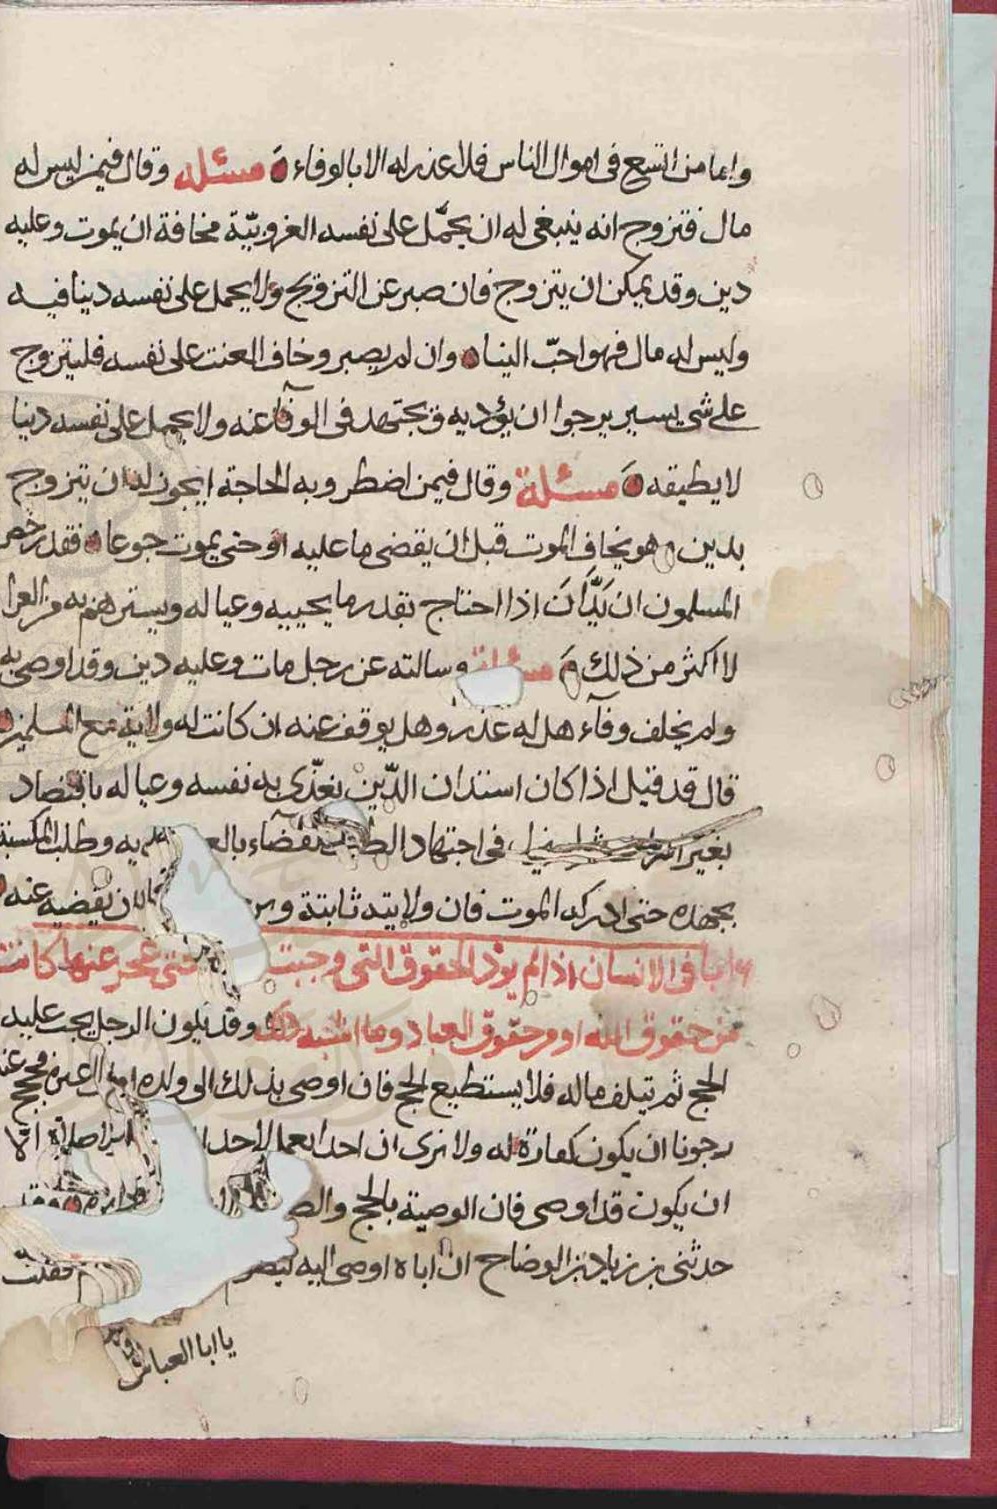 واما من اتسع في اموال الناس فلا عذر له الا بالوفاء مسئله وقال فيمن ليس له
مال فتزوج انه ينبغي له ان يحمّل على نفسه العزوبيّة مخافة ان يموت وعليه
دين وقد يمكن ان يتزوج فان صبر عن التزويج ولا يحمل على نفسه دينا فيه
وليس له مال فهو احبّ الينا وان لم يصبر وخاف العنت على نفسه فليتزوج
على شي يسير يرجوا ان يؤديه ويجتهد في الوفآ عنه ولا يحمل على نفسه دينا
لا يطيقه مسئلة وقال فيمن اضطر وبه الحاجة ايجوز له ان يتزوج
بدين وهو يخاف الموت قبل ان يقضي ما عليه او حتى يموت جوعا فقد رخص
المسلمون ان يدّان اذا احتاج بقدر ما يحييه وعياله ويسترهم به من العرا
لا اكثر من ذلك مسئلة وسالته عن رجل مات وعليه دين وقد اوصى به
ولم يخلف وفآء هل له عذر وهل يوقف عنه ان كانت له ولاية مع المسلمين
قال قد قيل اذا كان استدان الدّين يغذّي به نفسه وعياله باقتصاد
بغير في اجتهاد عليه وطلب المكسبة
بجهده حتى ادركه الموت فان ولايته ثابتة ان يقضيه عنه
في الانسان اذا لم يؤد الحقوق التي وجبت حتى عجز عنها كانت
من حقوق الله او من حقوق العباد وما اشبه ذلك وقد يكون الرجل يجب عليه
الحج ثم تيلف ماله فلا يستطيع الحج فان اوصى بذلك الى ولده فحج عنه
رجونا ان يكون كفارة له ولا نرى ان احدا يعمل لاحد صلاة الا
ان يكون قد اوصى فان الوصية بالحج
حدثني بن زياد بن الوضاح ان اباه اوصى اليه فقلت
يا ابا العباس